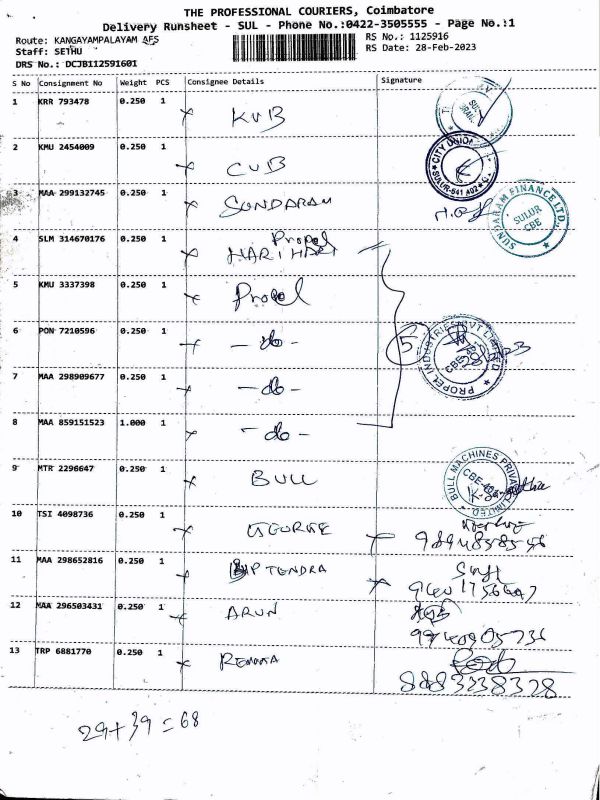 THE PROFESSIONAL COURIERS, Coimbatore
Delivery Runsheet - SUL - Phone No.:0422-3505555 - Page No.:1
Route: KANGAYAMPALAYAM AFS
Staff: SETHU
DRS No.: DCJB112591601
RS No.: 1125916
RS Date: 28-Feb-2023
S No Consignment No Weight PCS Consignee Details Signature
1 KRR 793478 0.250 1 KVB
2 KMU 2454009 0.250 1 CUB
CITY UNION
SULUR-641 402
3 MAA 299132745 0.250 1 SUNDARAM
SUNDARAM FINANCE LTD.,
SULUR
CBE
4 SLM 314670176 0.250 1 HARI HARI
Propel
5 KMU 3337398 0.250 1 Propel
6 PON 7210596 0.250 1 - do -
5
PROPEL INDUSTRIES PVT LIMITED
7 MAA 298909677 0.250 1 - do -
8 MAA 859151523 1.000 1 - do -
9 MTR 2296647 0.250 1 BULL
BULL MACHINES PRIVATE LIMITED.
10 TSI 4098736 0.250 1 GEORGE
11 MAA 298652816 0.250 1
12 MAA 296503431 0.250 1 ARUN
13 TRP 6881770 0.250 1
8883338328
29+39=68